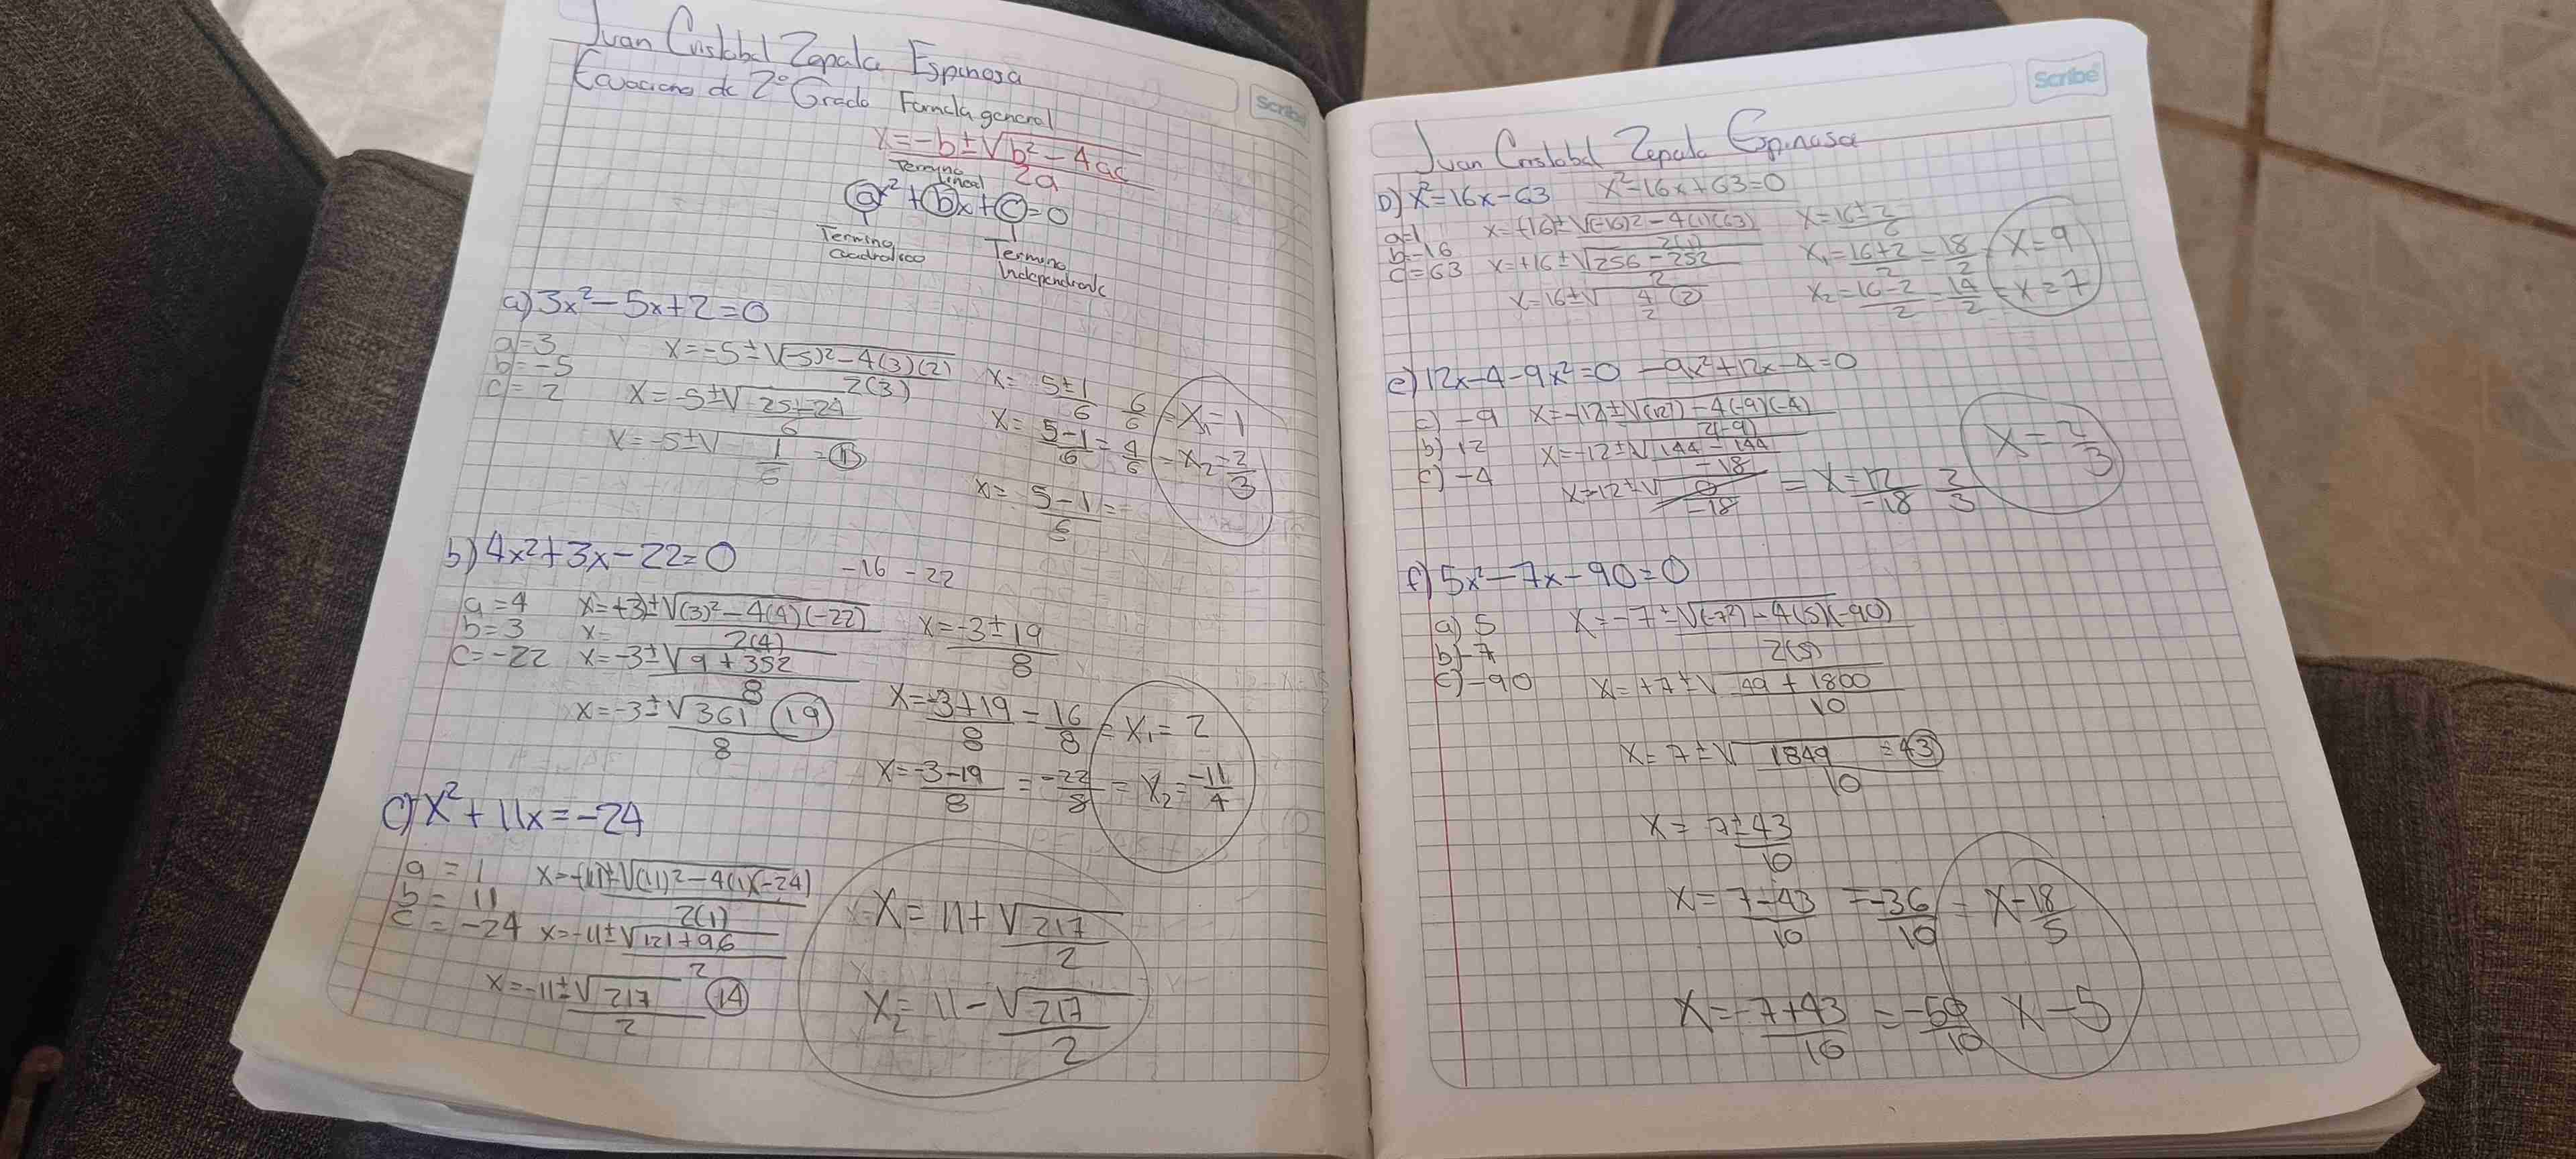 Juan Cristobal Zepala Espinosa
Ecuaciones de 2° Grado Formula general
Scribe
x=-b±√b²-4ac
2a
Termino
lineal
ax²+bx+c=0
Termino
cuadratico
Termino
Independiente
a) 3x²-5x+2=0
a=3
b=-5
c= 2
x=-5±√(-5)²-4(3)(2)
2(3)
x=-5±√25-24
6
x=-5±√1
6
x= 5±1
6
6
6
=x₁=1
x= 5-1 = 4 = x₂=2
6 6 3
x= 5-1=
6
b) 4x²+3x-22=0
-16 -22
a=4
b=3
c=-22
x=+3)±√(3)²-4(4)(-22)
2(4)
x=
x=-3±√9+352
8
x=-3±√361 19
8
x=-3±19
8
x=-3+19 = 16 = x₁=2
8 8
x=-3-19 = -22 = x₂=-11
8 8 4
c) x²+11x=-24
a = 1
b = 11
c = -24
x=-(11)±√(11)²-4(1)(-24)
2(1)
x=-11±√121+96
2
x=-11±√217 14
2
x= 11+√217
2
x₂= 11-√217
2
Scribe
Juan Cristobal Zepala Espinosa
D) x²=16x-63 x²-16x+63=0
a=1
b=-16
c=63
x=+(16)±√(-16)2-4(1)(63)
2(1)
x=+16±√256-252
2
x=16±√4 2
2
x=16±2
x₁=16+2=18 x=9
2 2
x₂=16-2=14=x=7
2 2
e) 12x-4-9x²=0 -9x²+12x-4=0
-9
b) 12
c) -4
x=-12±√(12²)-4(-9)(-4)
2(-9)
x=-12±√144-144
-18
x=-12±√0
-18
= x=12 2
-18 3
x=2
3
f) 5x²-7x-90=0
a) 5
b)-7
c)-90
x=-7±√(-7²)-4(5)(-90)
2(5)
x=+7±√49+1800
10
x=7±√1849 =43
10
x= 7±43
10
x= 7-43 =-36 = x-18
10 10 5
x=-7+43 =-50 x-5
10 10